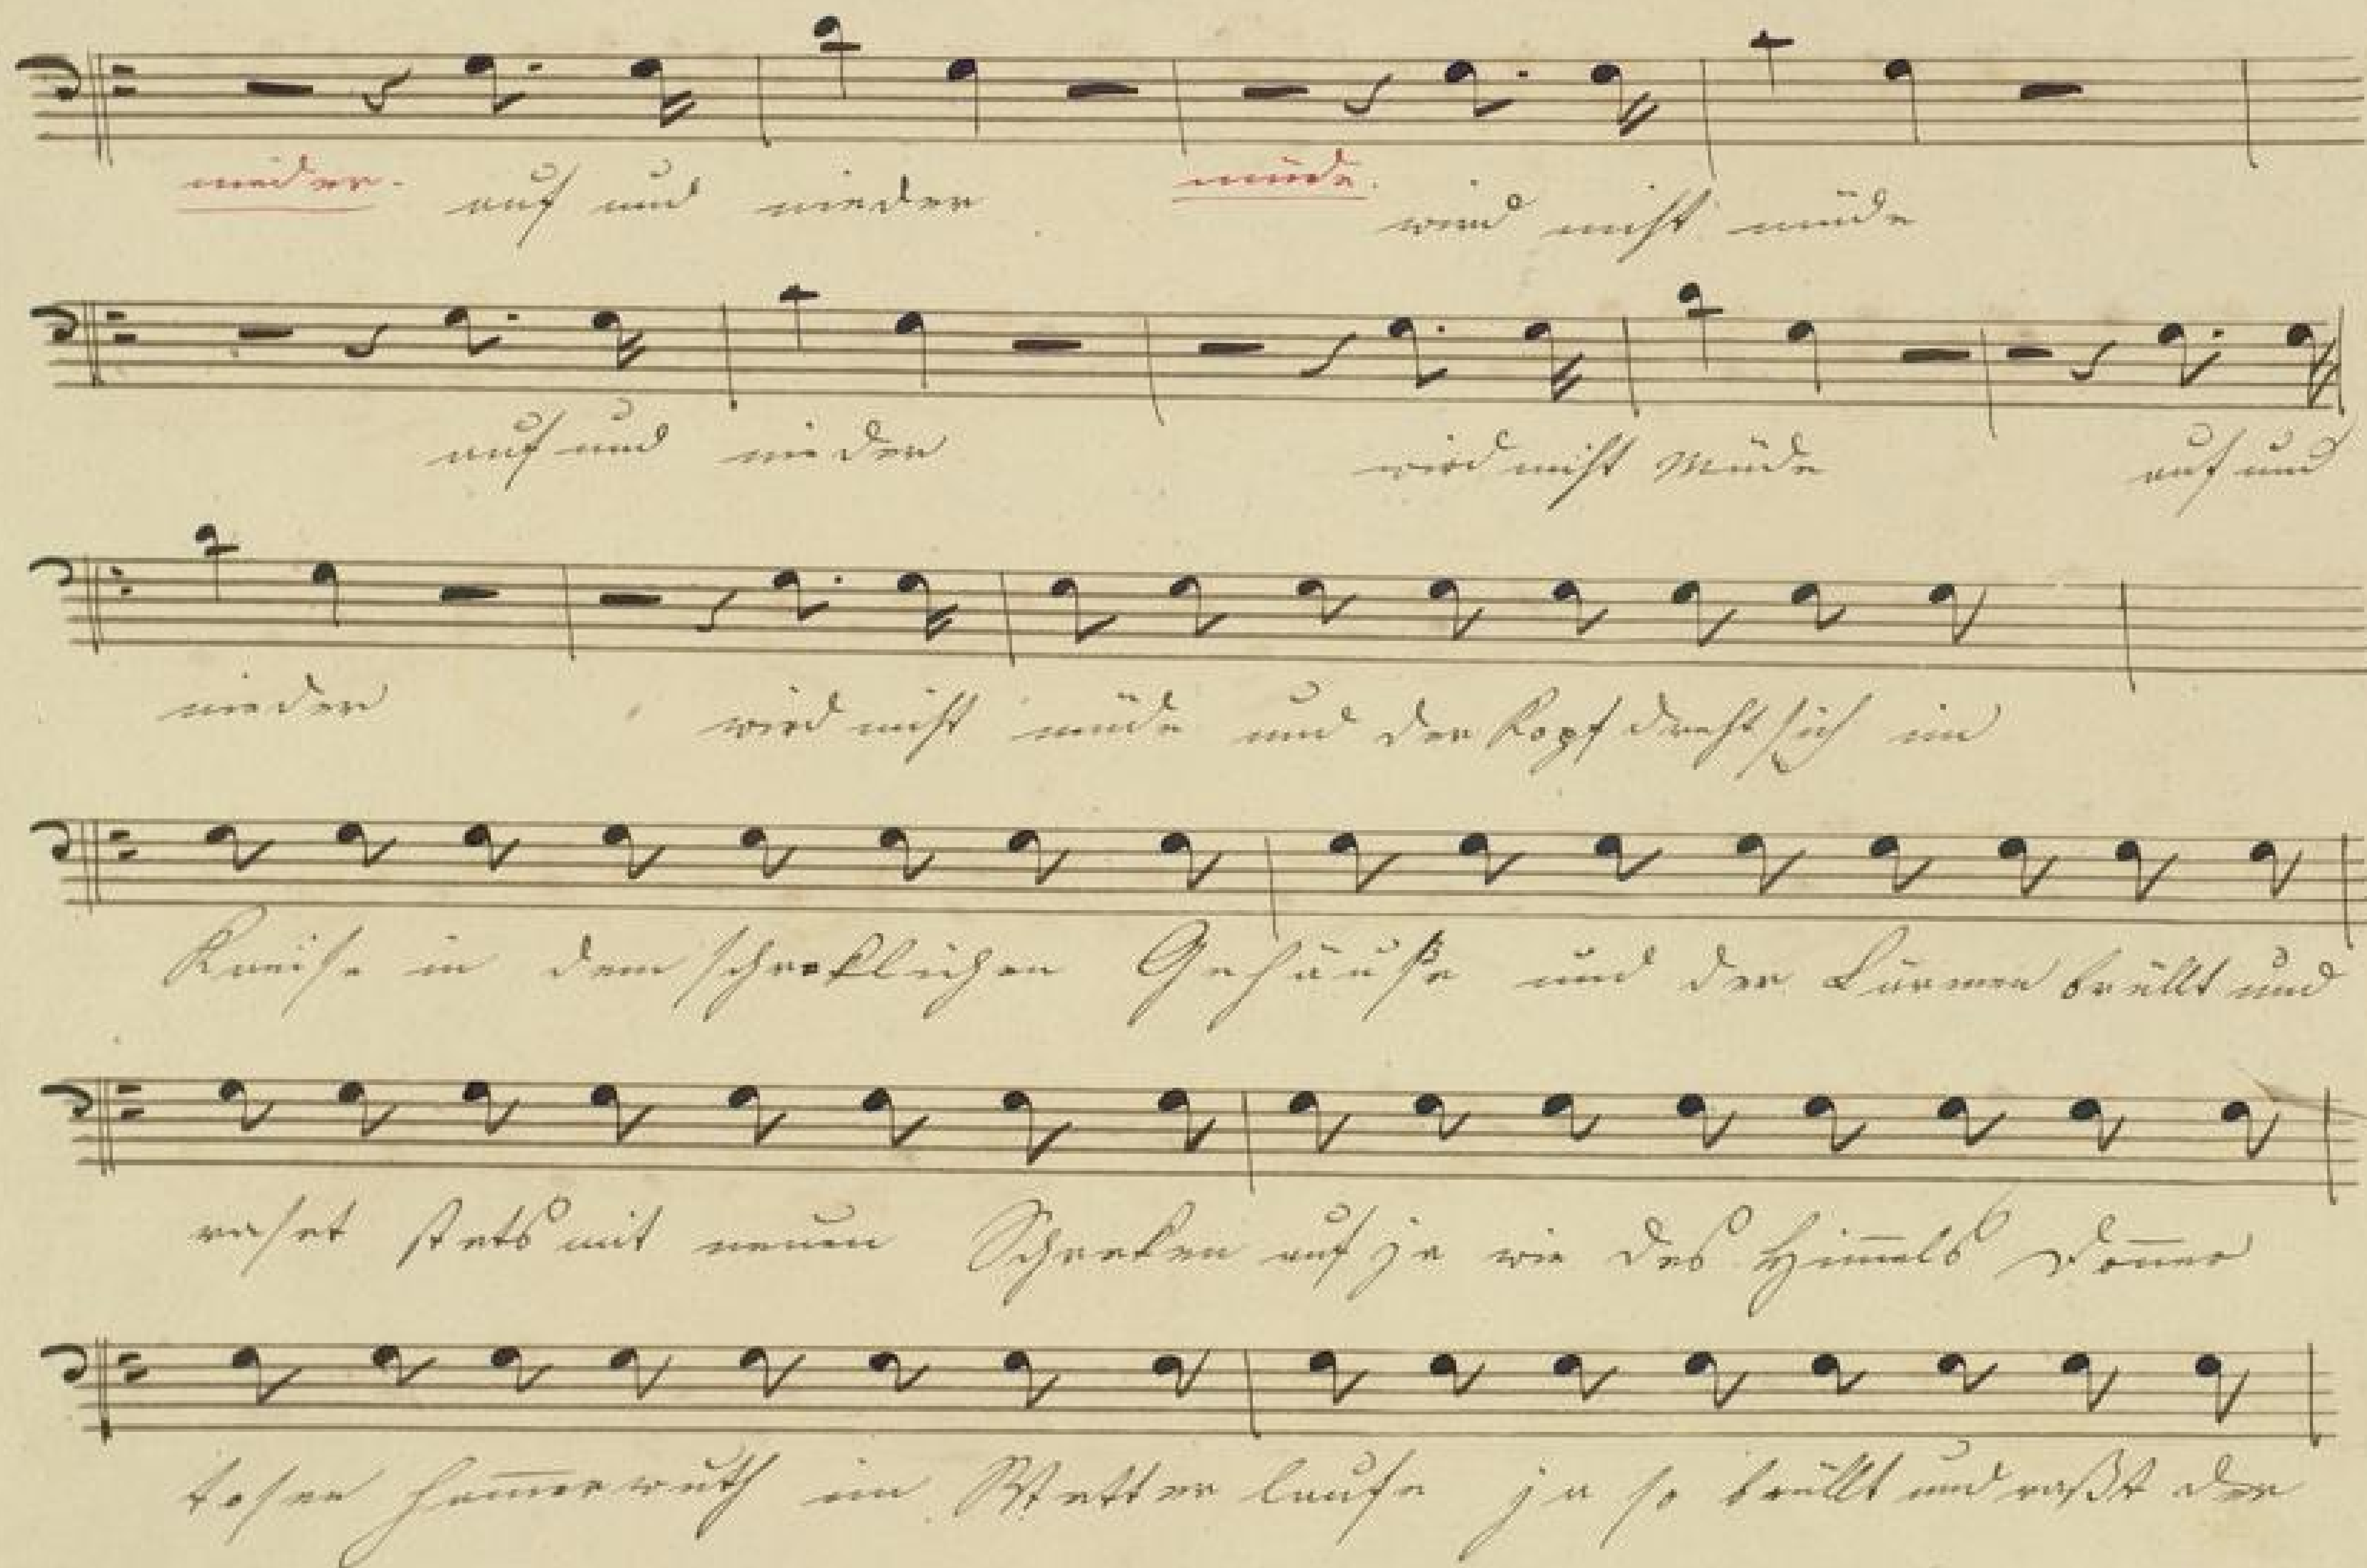 nieder. auf und nieder müde. wird nicht müde
auf und nieder wird nicht müde auf und
nieder wird nicht müde und der Kopf dreht sich im
Kreise in dem schreklichen Gehäuße und der Lärmen brüllt und
raset stets mit neuen Schreken auf ja wie des Him̄els Don̄er
tosen Ham̄erwuth im Wetter laufe ja so brüllt und raßt der